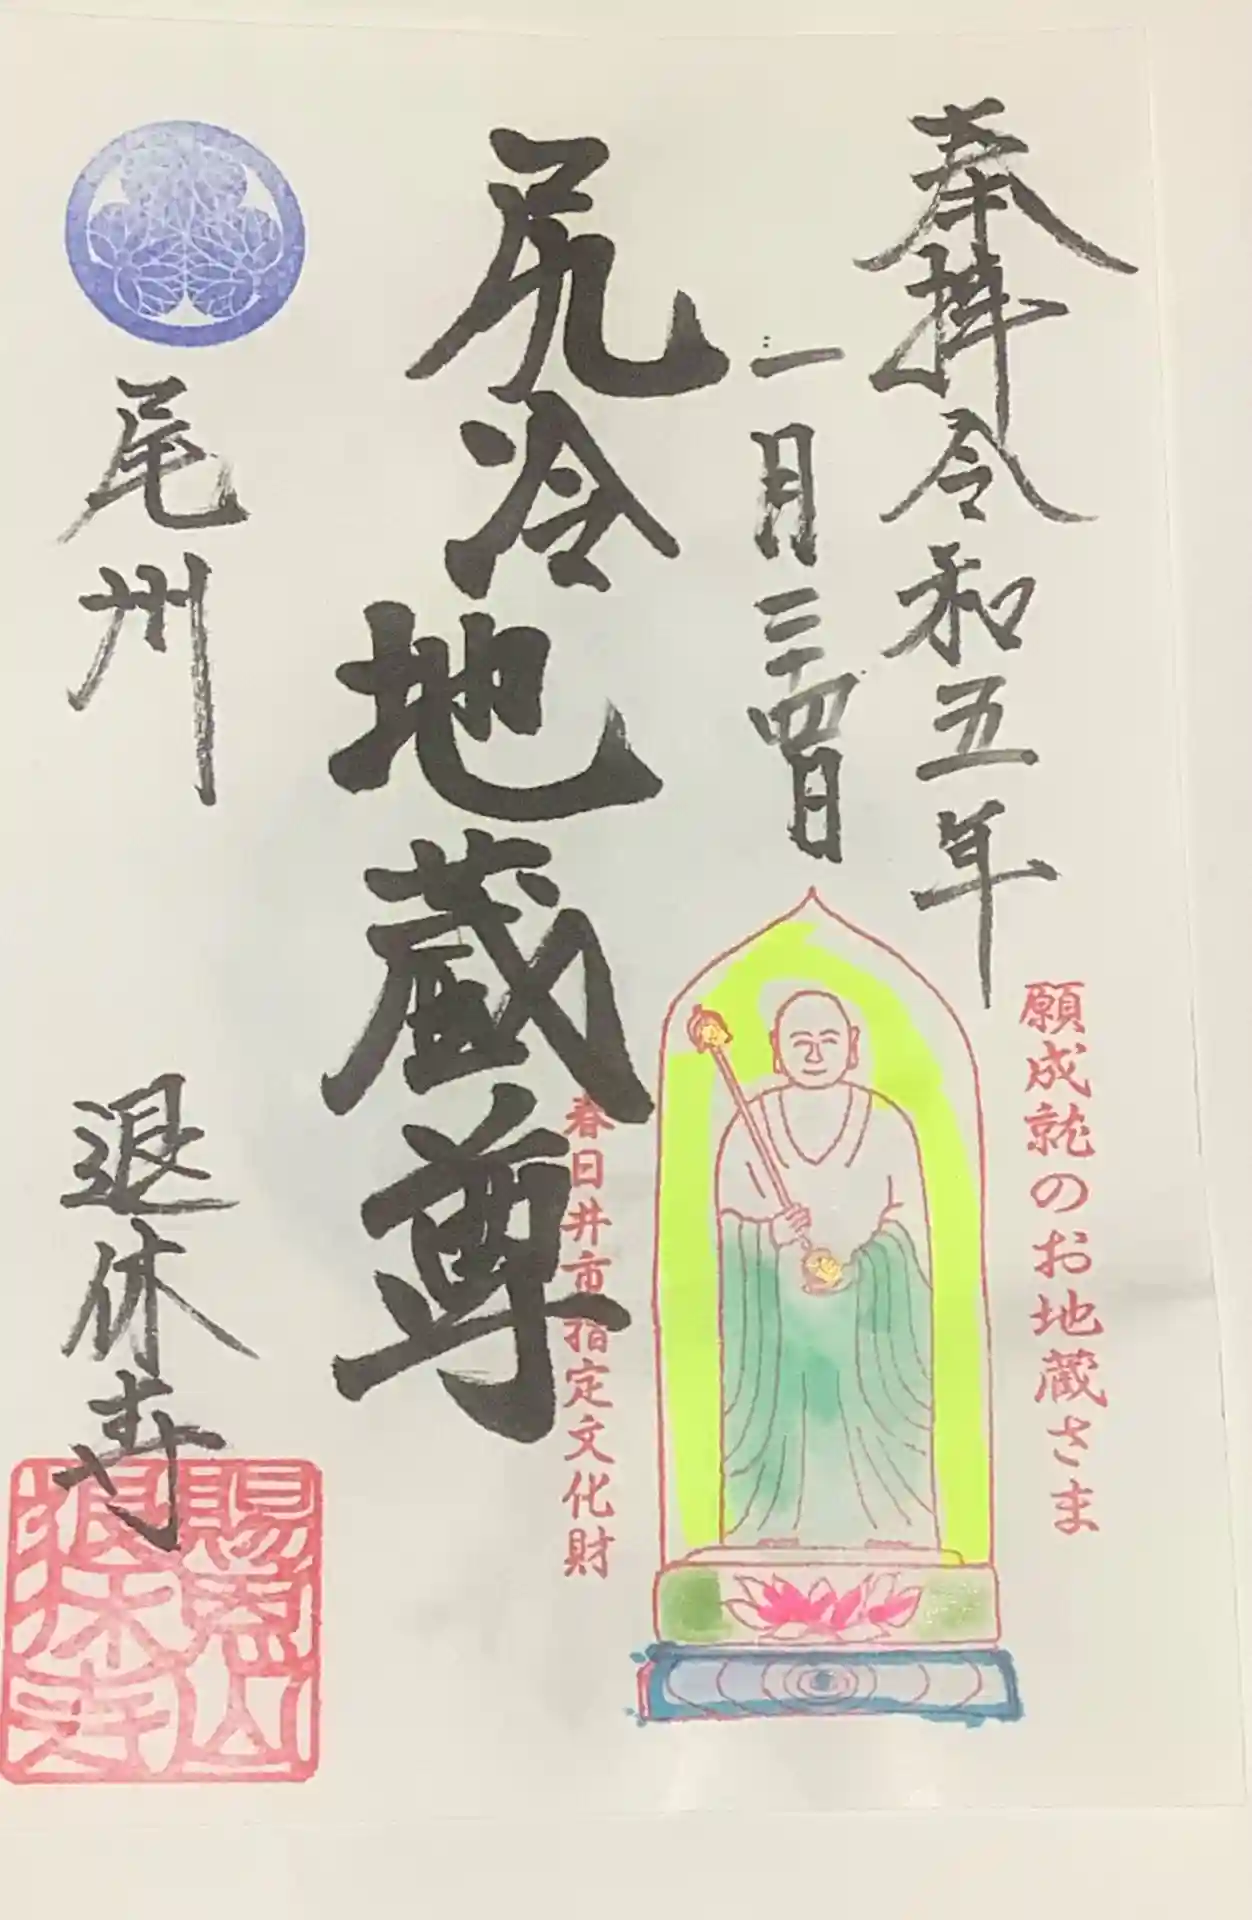 奉拝令和五年
願成就のお地蔵さま
一月二十四日
尻冷地蔵尊
春日井市指定文化財
尾州
退休寺